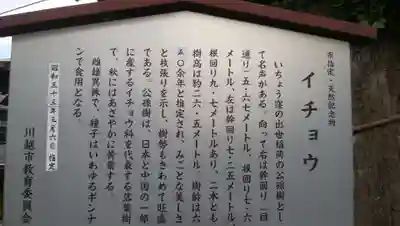 市指定・天然記念物
イチョウ
いちょう窪の出世稲荷の公孫樹とし
て名声がある。向って右は幹回り(目
通り)五・六七メートル、根回り七・六
メートル、左は幹回り七・二五メートル、
根回り九・七メートルあり、二木とも
樹高は約二六・五メートル、樹齢は六
五〇余年と推定され、みごとな美しさ
と枝張りを示し、樹勢もきわめて旺盛
である。公孫樹は、日本と中国の一部
に産するイチョウ科を代表する落葉樹
で、秋にはあざやかに黄葉する。
雌雄異株で、種子はいわゆるギンナ
ンで食用となる。
昭和五十三年三月六日指定
川越市教育委員会